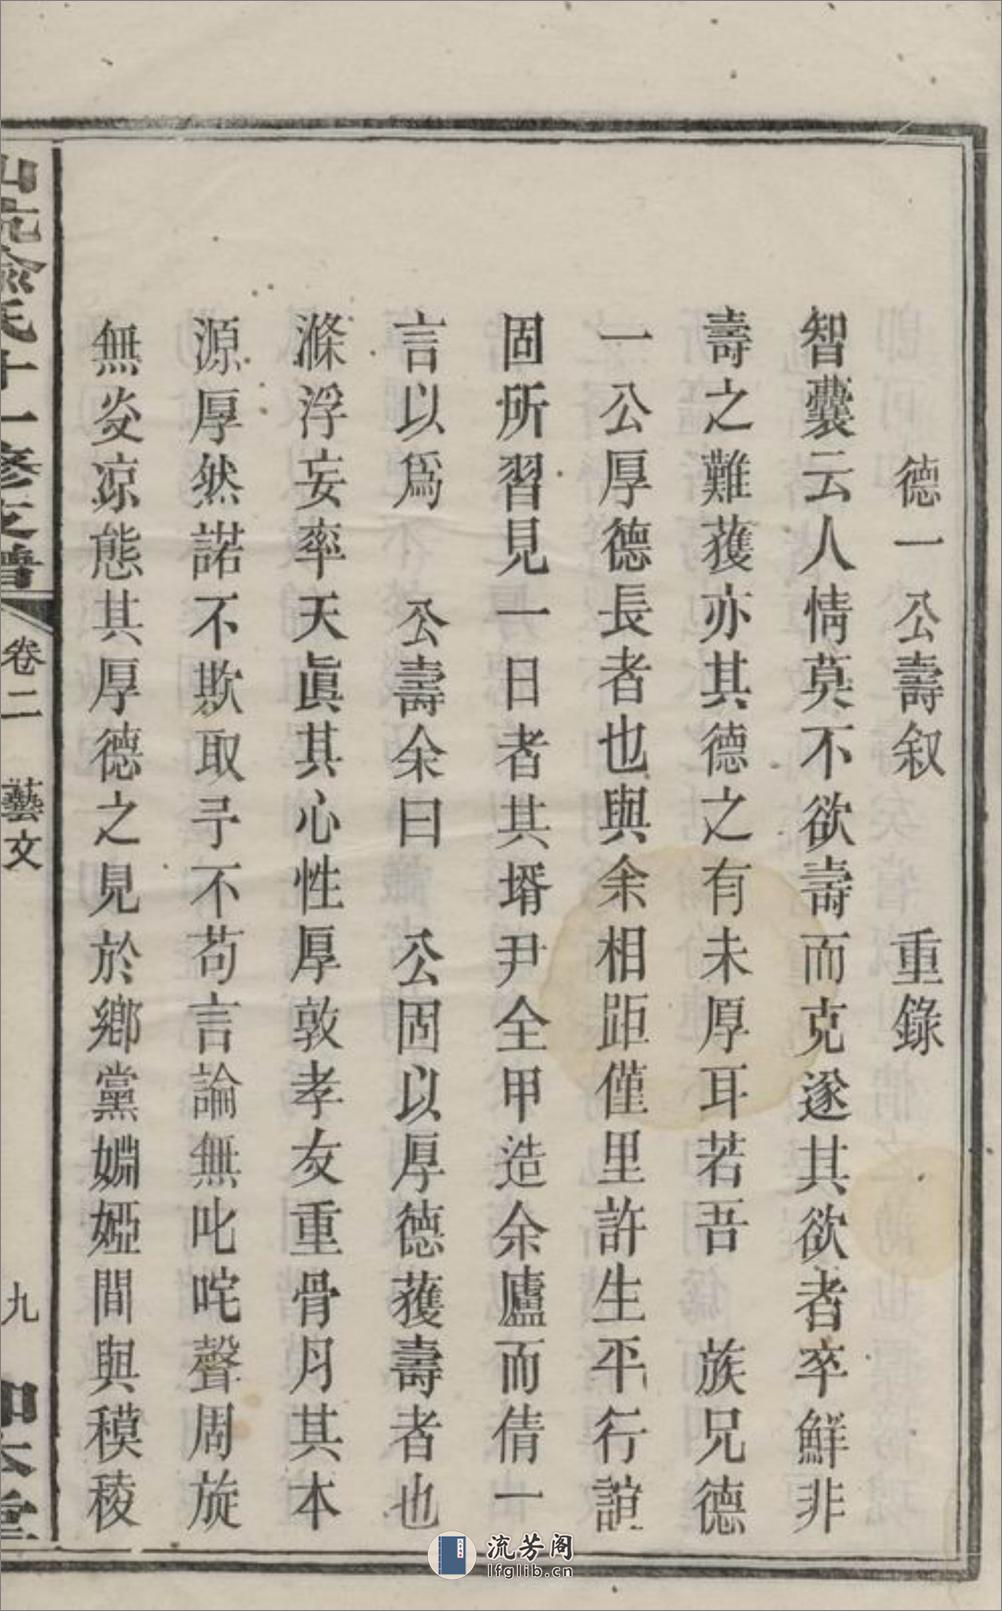 德一公壽叙　重錄
智囊云人情莫不欲壽而克遂其欲者卒鮮非
壽之難獲亦其德之有未厚耳若吾　族兄德
一　公厚德長者也與余相距僅里許生平行誼
固所習見一日者其壻尹全甲造余廬而倩一
言以爲　公壽余曰　公固以厚德獲壽者也
滌浮妄率天眞其心性厚敦孝友重骨月其本
源厚然諾不欺取予不苟言論無叱咤聲周旋
無炎凉態其厚德之見於鄉黨婣婭間與稷稜
俞氏十一修支譜
卷二　藝文
九
流芳阁
lfglib.cn